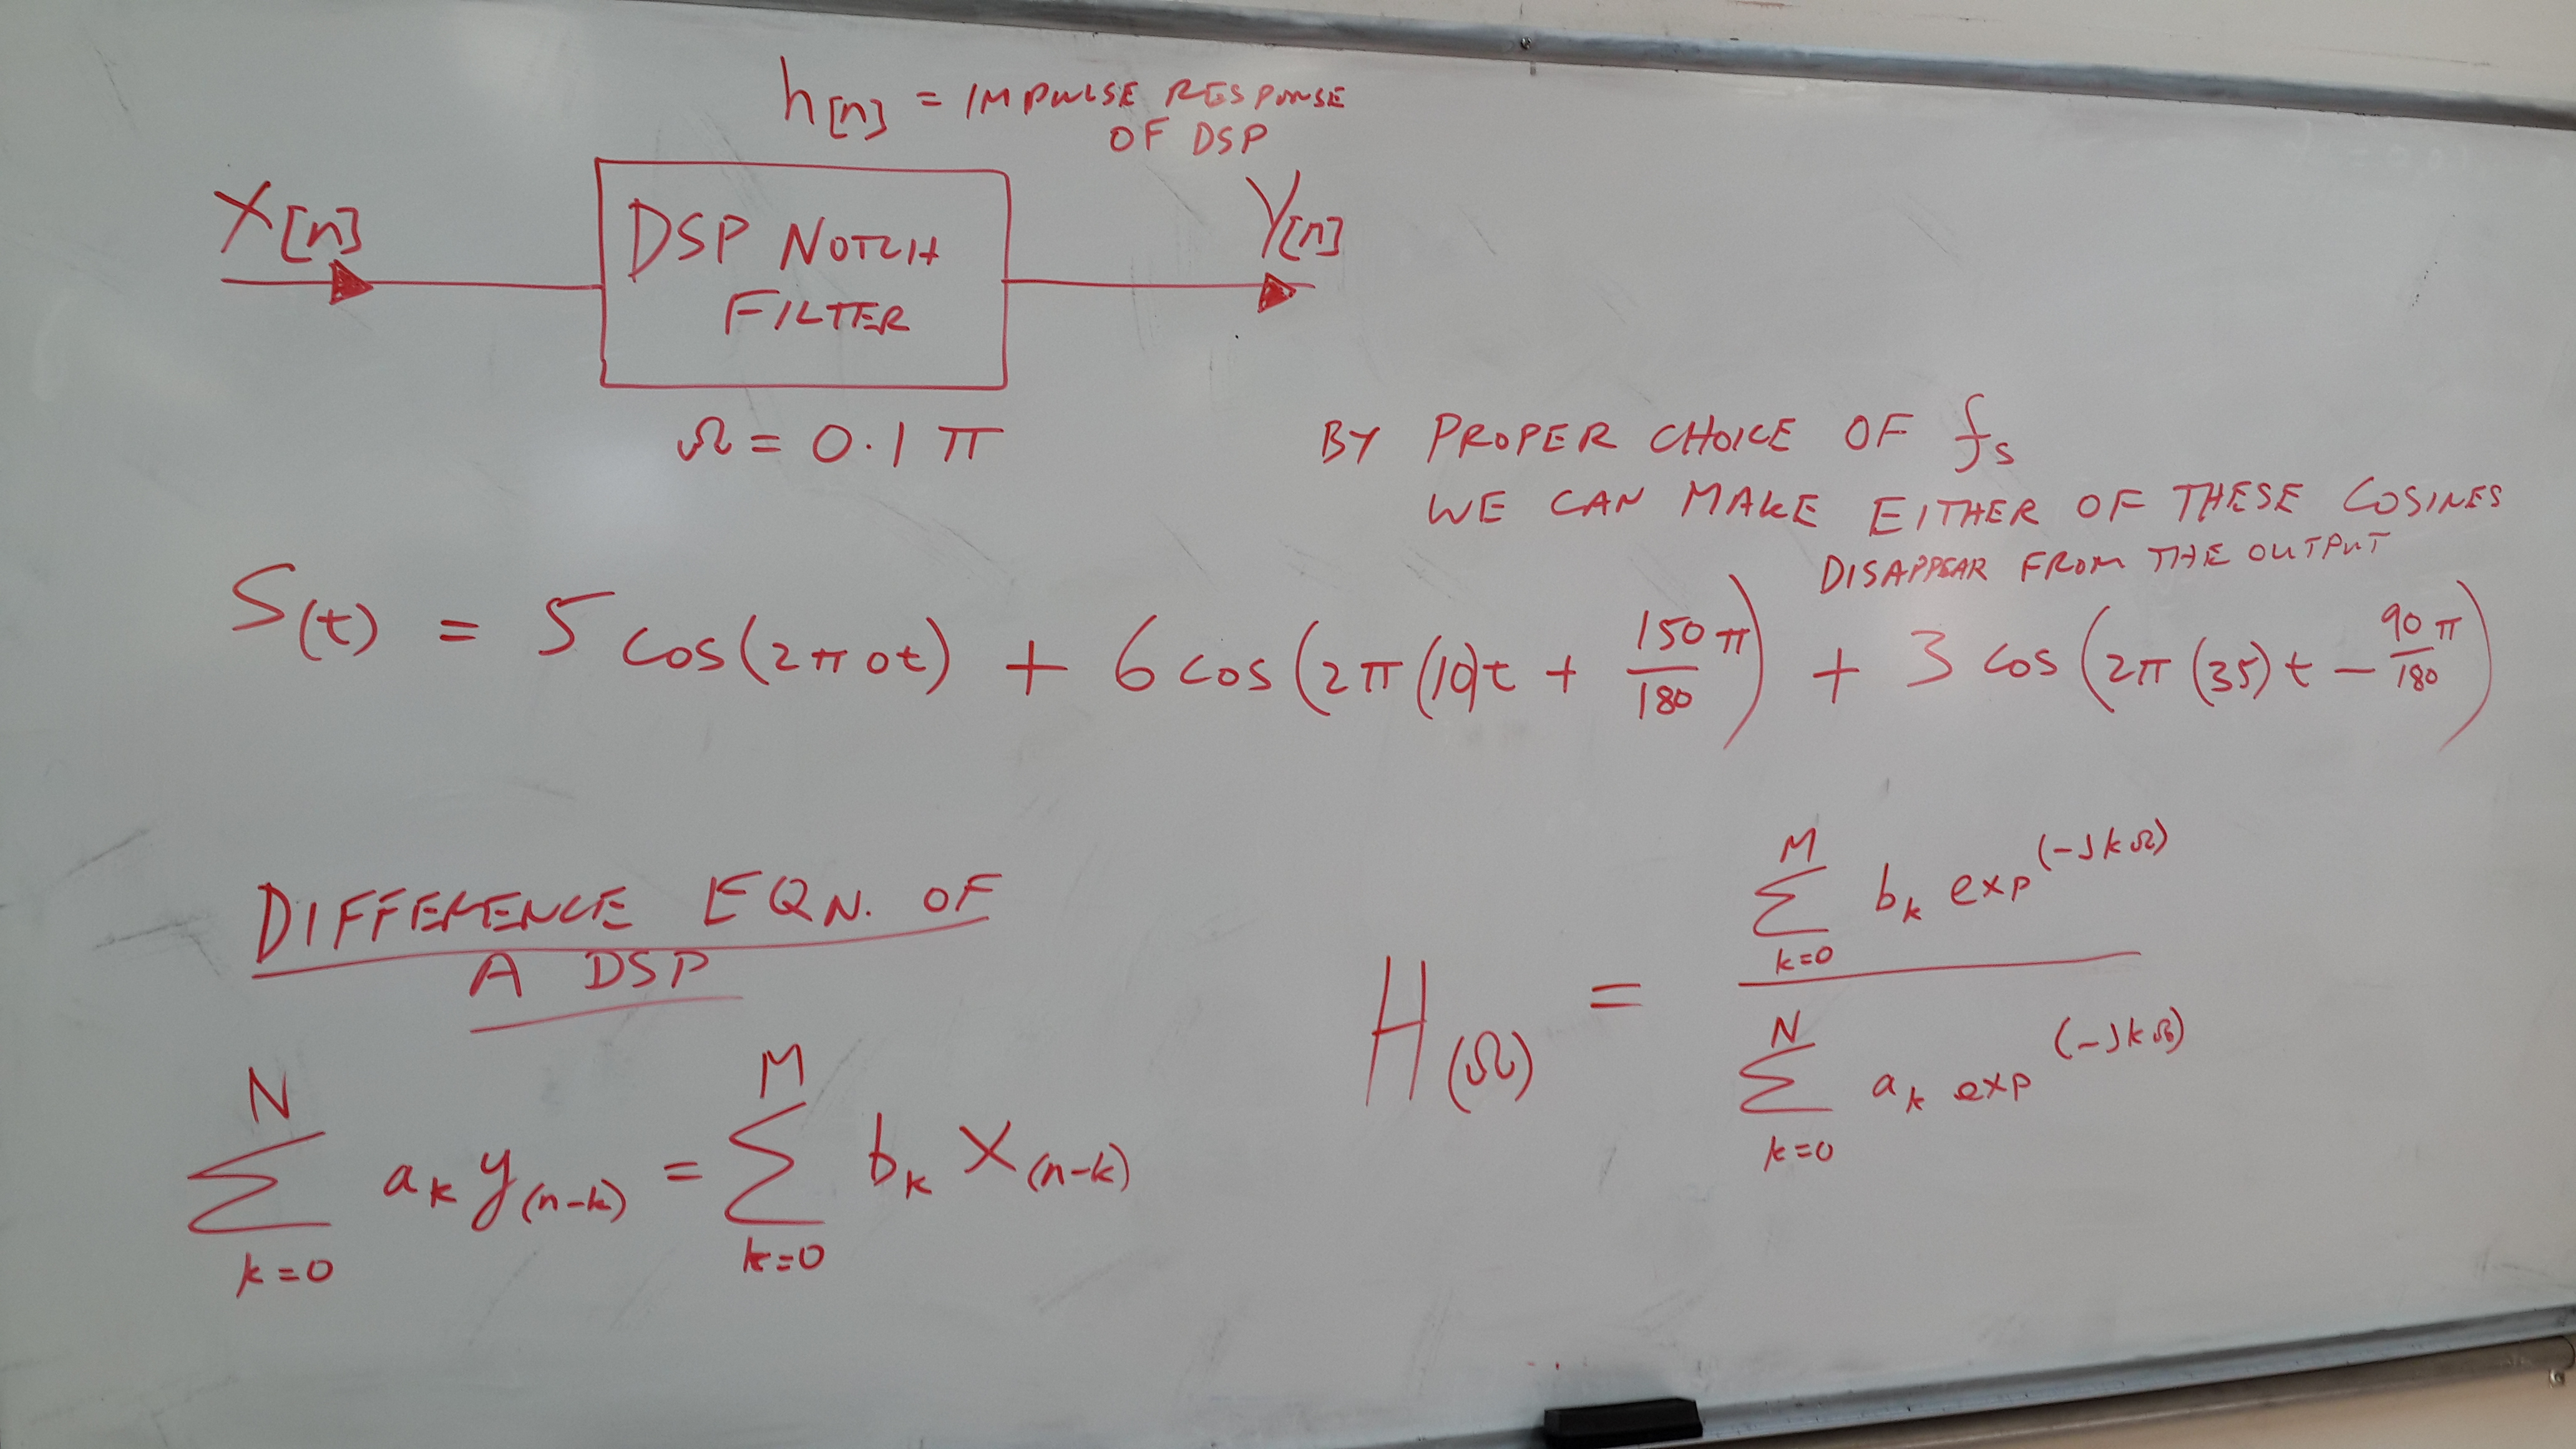 h[n] = IMPULSE RESPONSE
OF DSP
X[n]
DSP NOTCH
FILTER
Y[n]
Ω = 0.1 π
BY PROPER CHOICE OF fs
WE CAN MAKE EITHER OF THESE COSINES
DISAPPEAR FROM THE OUTPUT
S(t) = 5 cos(2π0t) + 6 cos(2π(10)t + 150π/180) + 3 cos(2π(35)t - 90π/180)
DIFFERENCE EQN. OF
A DSP
N
Σ a_k y(n-k) = M Σ b_k X(n-k)
k=0 k=0
H(Ω) =
M
Σ b_k exp^(-jkΩ)
k=0
N
Σ a_k exp^(-jkΩ)
k=0